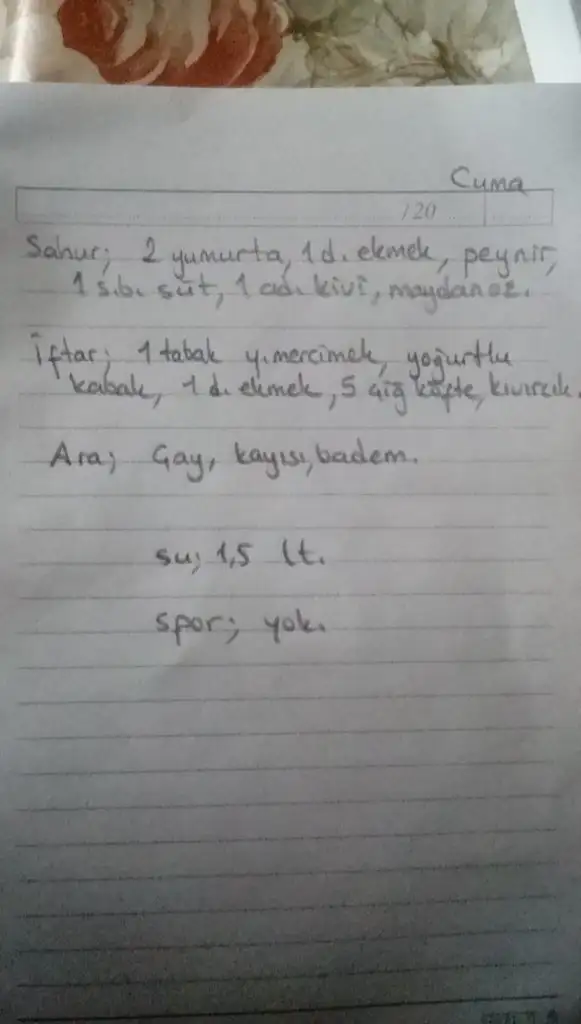 Cuma
/20
Sahur; 2 yumurta, 1 d. ekmek, peynir,
1 s.b. süt, 1 ad. kivi, maydanoz.
İftar; 1 tabak y.mercimek, yoğurtlu
kabak, 1 d. ekmek, 5 çiğ köfte, kıvırcık.
Ara; Çay, kayısı, badem.
su; 1,5 lt.
spor; yok.